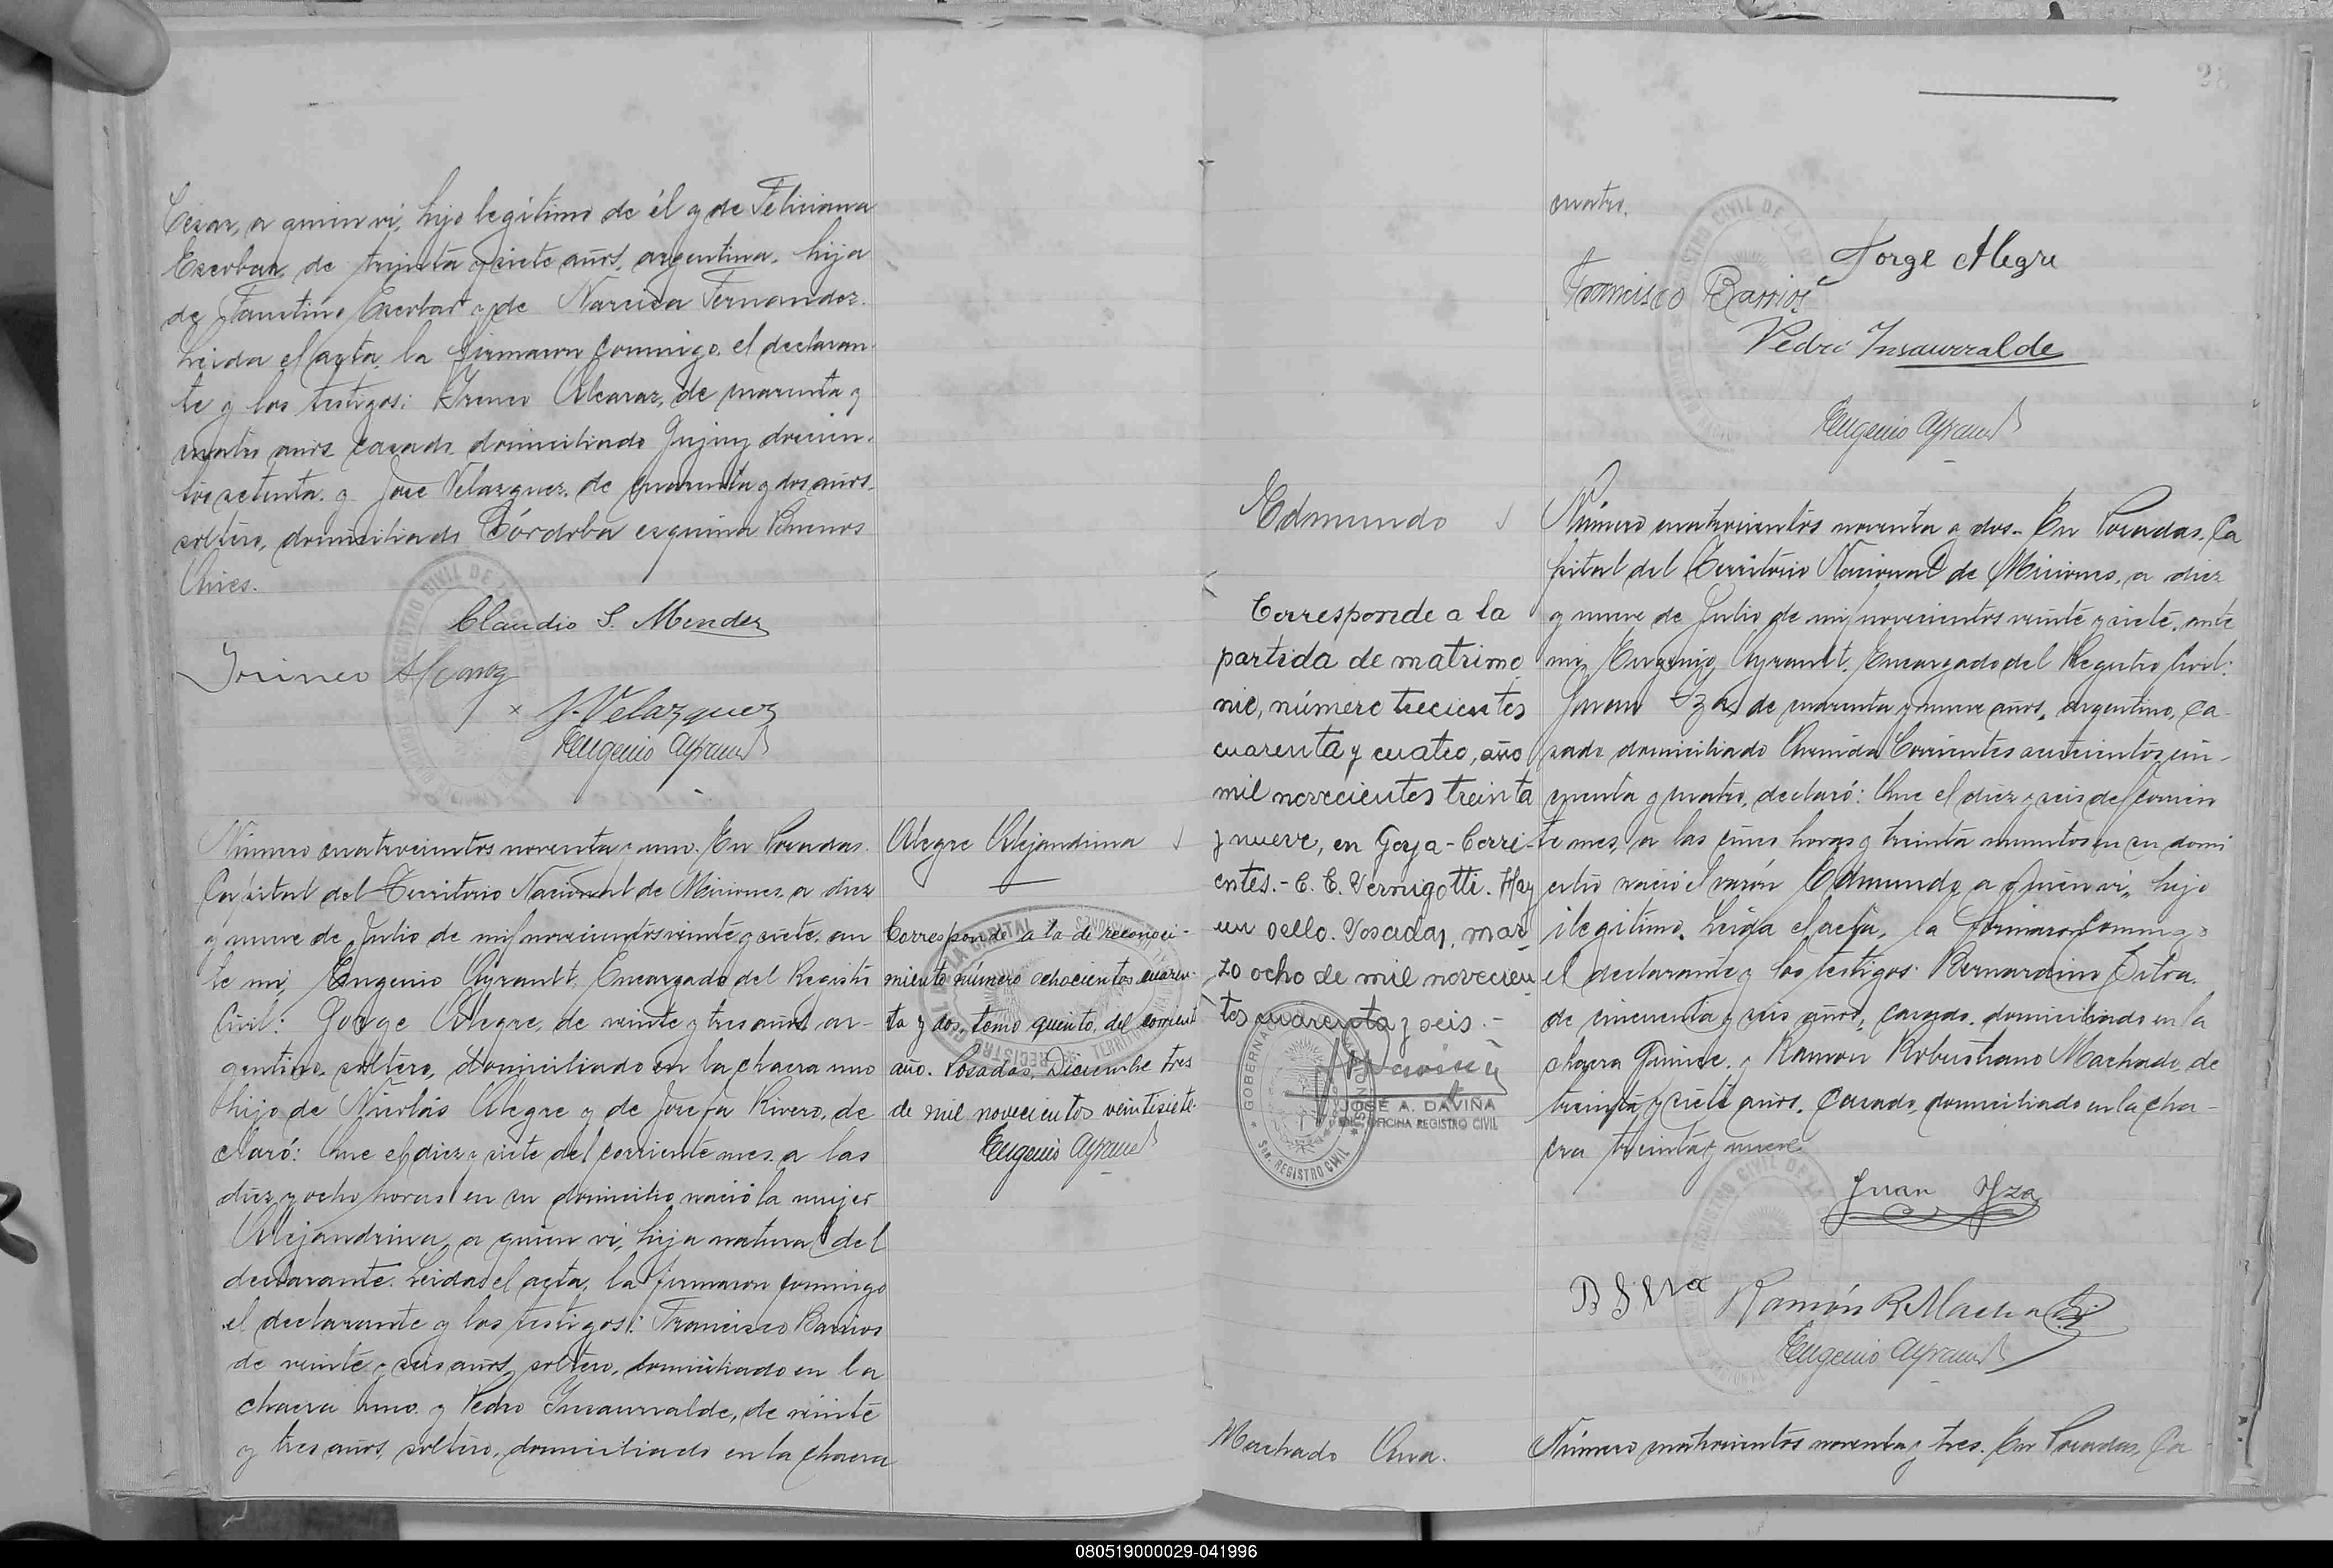 Cezar, a quien vi, hijo legítimo de él y de Feliciana
Escobar, de treinta y siete años, argentina, hija
de Faustino Escobar y de Narcisa Fernandez.
Leida el acta, la firmaron conmigo, el declaran-
te y los testigos: Irineo Alcaraz, de cuarenta y
cuatro años casado domiciliado Jujuy doscien-
tos setenta. y José Velazquez, de cuarenta y dos años.
soltero, domiciliado Córdoba esquina Buenos
Aires.
Claudio S. Mendez
Irineo Alcaraz
x J. Velazquez
Eugenio Ayrault
Número cuatrocientos noventa y uno. En Posadas.
Capital del Territorio Nacional de Misiones, a diez
y nueve de Julio de mil novecientos veinte y siete, an
te mi, Eugenio Ayrault, Encargado del Registro
Civil: Jorge Alegre, de veinte y tres años, ar-
gentino, soltero, domiciliado en la chacra uno
hijo de Nicolás Alegre y de Josefa Rivero, de
claró: Que el diez y siete del corriente mes, a las
diez y ocho horas, en su domicilio nació la mujer
Alejandrina, a quien vi, hija natural del
declarante. Leida el acta, la firmaron conmigo
el declarante y los testigos: Francisco Barrios
de veinte y seis años, soltero, domiciliado en la
chacra uno. y Pedro Insaurralde, de veinte
y tres años, soltero, domiciliado en la chacra
Alegre Alejandrina
Corresponde a la de reconoci-
miento número ochocientos cuaren-
ta y dos, tomo quinto, del corriente
año. Posadas, Diciembre tres
de mil novecientos veintisiete.
Eugenio Ayrault
38
cuatro.
Jorge Alegre
Francisco Barrios
Pedro Insaurralde
Eugenio Ayrault
Edmundo
Corresponde a la
partida de matrimo
nio, número trecientos
cuarenta y cuatro, año
mil novecientos treinta
y nueve, en Goya-Corri-
entes.- C. C. Vernigotti. Hay
un sello. Posadas, mar
zo ocho de mil novecien
tos cuarenta y seis.-
JOSÉ A. DAVIÑA
OFICINA REGISTRO CIVIL
Número cuatrocientos noventa y dos. En Posadas, Ca
pital del Territorio Nacional de Misiones, a diez
y nueve de Julio de mil novecientos veinte y siete, ante
mi, Eugenio Ayrault, Encargado del Registro Civil:
Juan Yza, de cuarenta y nueve años, argentino, ca-
sado domiciliado Avenida Corrientes seiscientos cin-
cuenta y cuatro, declaró: Que el diez y seis del corrien
te mes, a las cinco horas y treinta minutos en su domi
cilio nació el varón Edmundo, a quien vi, hijo
ilegitimo. Leida el acta, la firmaron conmigo
el declarante y los testigos: Bernardino Silva,
de cincuenta y seis años, casado, domiciliado en la
chacra quince. y Ramon Robustiano Machado, de
treinta y siete años, casado, domiciliado en la cha-
cra treinta y nueve
Juan Yza
B Silva
Ramón R Machado
Eugenio Ayrault
Machado Ana.
Número cuatrocientos noventa y tres. En Posadas, Ca
080519000029-041996